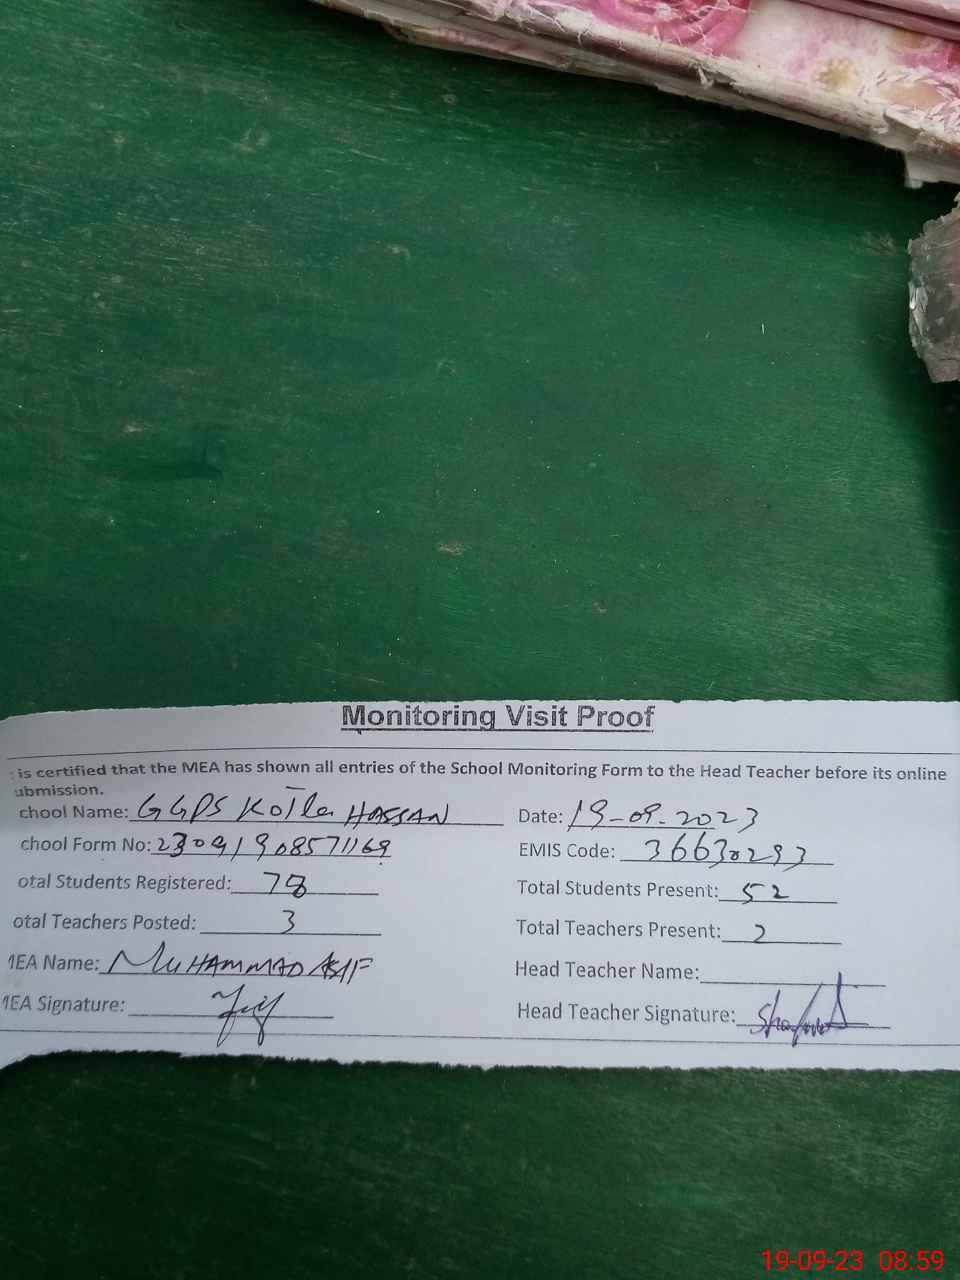 Monitoring Visit Proof
is certified that the MEA has shown all entries of the School Monitoring Form to the Head Teacher before its online
ubmission.
chool Name: GGPS Kotla HASSAN Date: 19-09-2023
chool Form No: 23091908571169 EMIS Code: 36630293
otal Students Registered: 78 Total Students Present: 52
otal Teachers Posted: 3 Total Teachers Present: 2
MEA Name: MUHAMMAD ASIF Head Teacher Name:
MEA Signature: Head Teacher Signature:
19-09-23 08:59